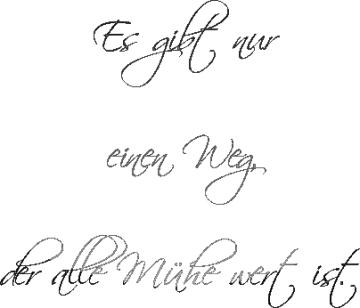 Es gibt nur
einen Weg,
der alle Mühe wert ist.